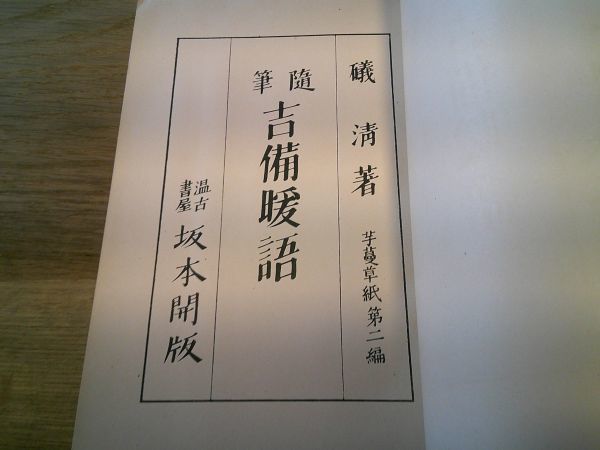 礒清著
芋蔓草紙第二編
隨筆
吉備暖語
温古書屋
坂本開版